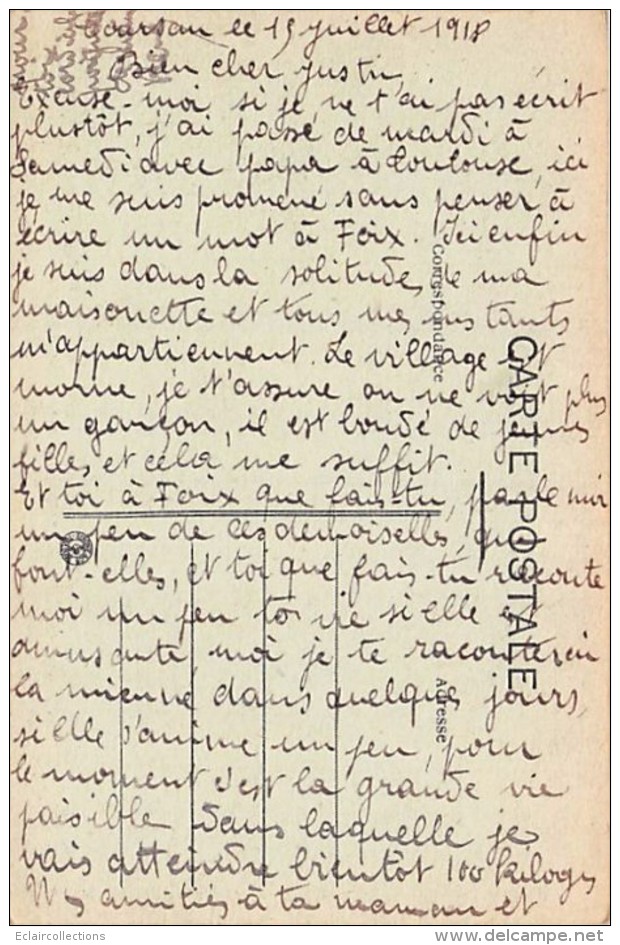 Coursan le 15 juillet 1918
Bien cher Justin
Excuse-moi si je ne t'ai pas écrit
plustôt, j'ai passé de mardi à
Samedi avec papa à Toulouse, ici
je me suis promené sans penser à
écrire un mot à Foix. Ici enfin
je suis dans la solitude, de ma
maisonette et tous mes instants
m'appartiennent. Le village est
morne, je t'assure on ne voit plus
un garçon, il est bondé de jeunes
filles, et cela me suffit.
Et toi à Foix que fais-tu, parle moi
un peu de ces demoiselles, que
font-elles, et toi que fais-tu raconte
moi un peu ta vie si elle est
amusante, moi je te raconterai
la mienne dans quelques jours,
si elle s'anime un peu, pour
le moment c'est la grande vie
paisible dans laquelle je
vais atteindre bientôt 100 kilogs
Mes amitiés à ta maman et
Correspondance
CARTE POSTALE
Adresse
Eclaircollections
www.delcampe.net